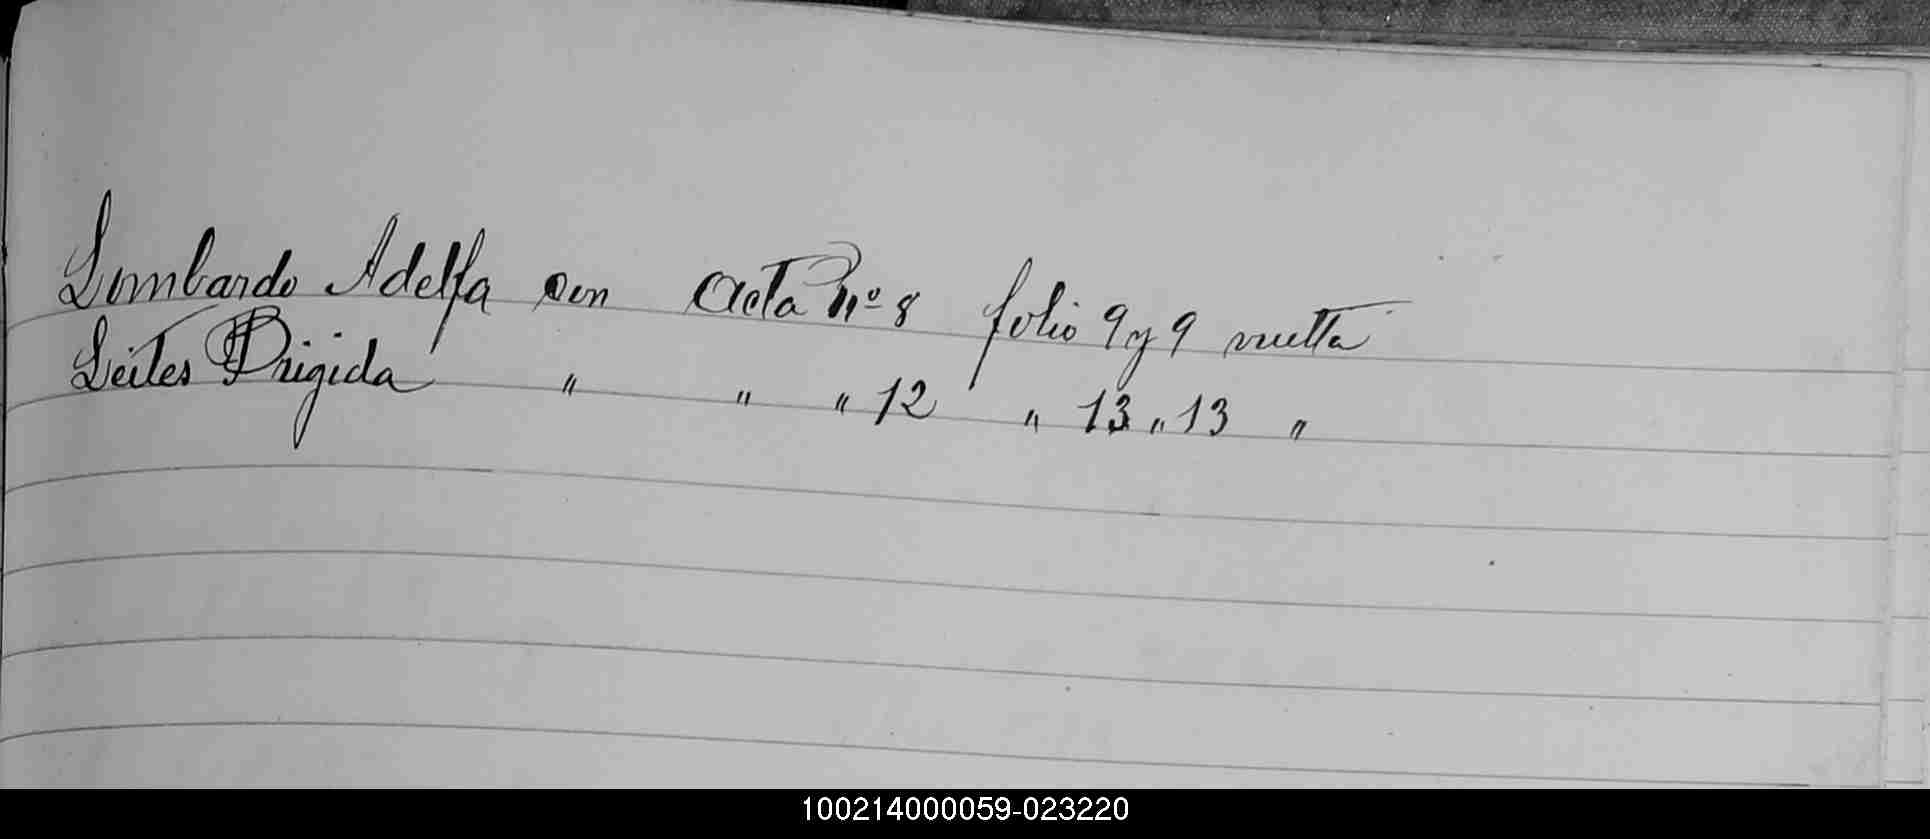 Lombardo Adelfa con Acta Nº 8 folio 9 y 9 vuelta
Leites Brigida " " " 12 " 13 " 13 "
100214000059-023220